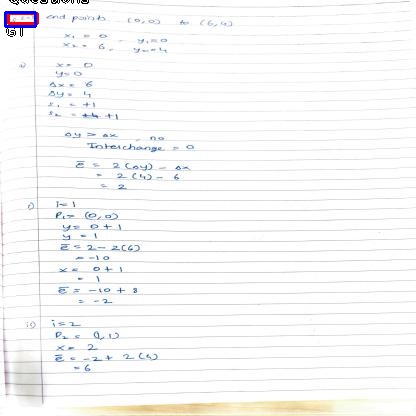 Questions
end points (0,0) to (6,4)
G1
x₁ = 0 y₁=0
x₂ = 6, y₂=4
x = 0
y=0
Δx = 6
Δy = 4
s₁ = +1
s₂ = +1
Δy > Δx no
Interchange = 0
ē = 2(Δy) - Δx
= 2(4) - 6
= 2
i) i=1
P₁= (0,0)
y = 0+1
y = 1
ē = 2 - 2(6)
= -10
x = 0+1
= 1
ē = -10 + 8
= -2
ii) i=2
P₂ = (1,1)
x = 2
ē = -2 + 2(4)
= 6